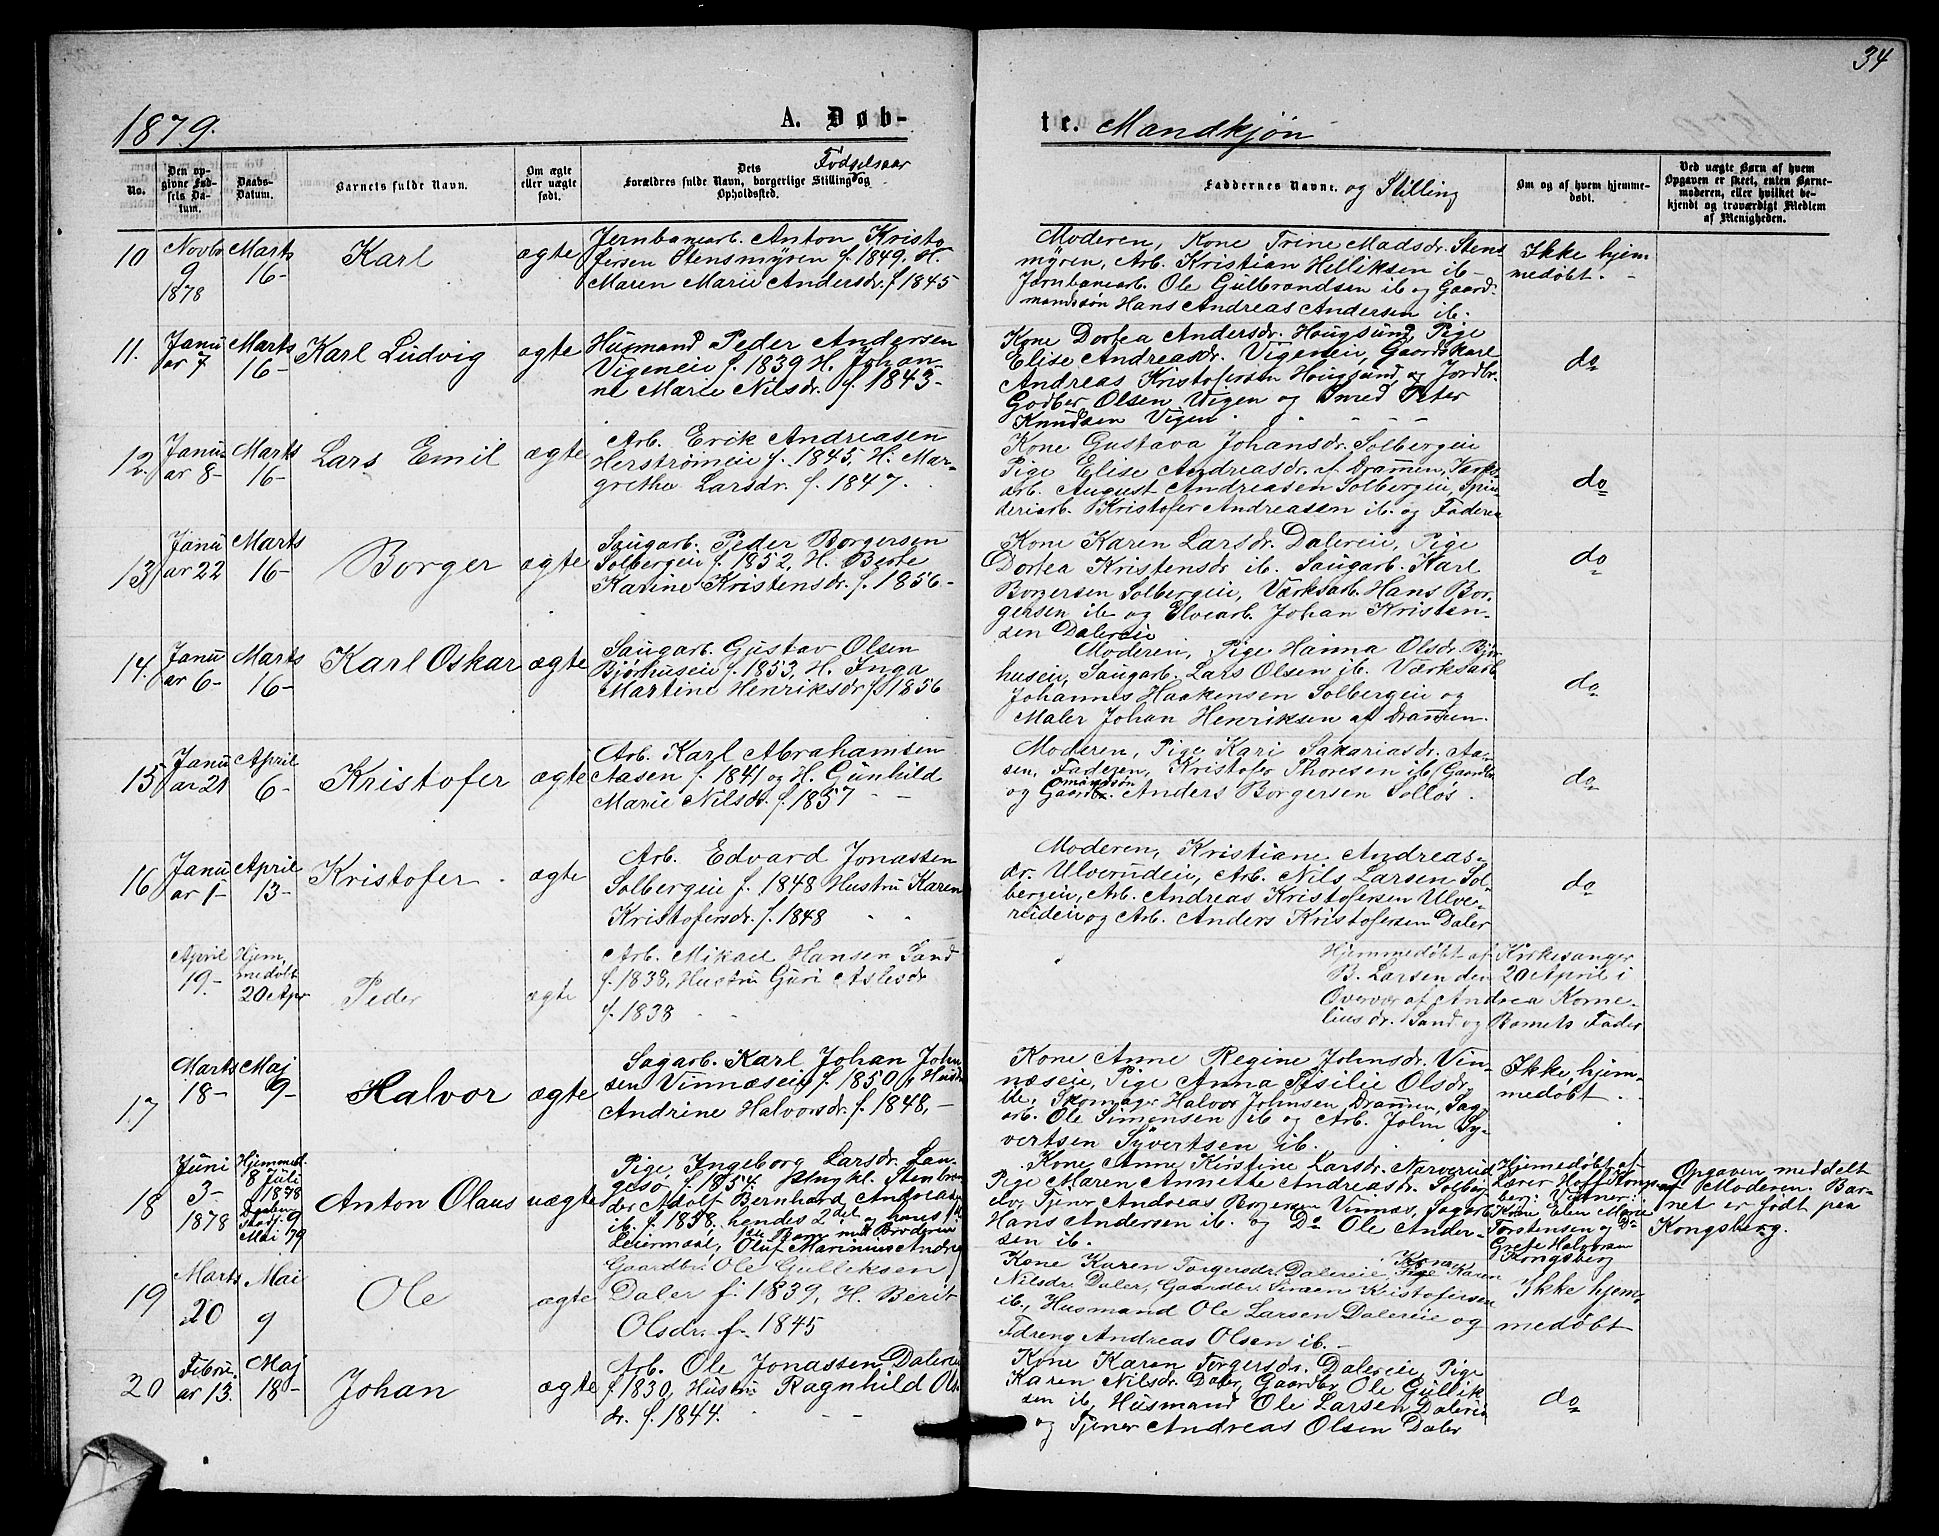 34
1879.
A. Døb-
te. Mandkjøn
No.
Den op-
givne Fød-
sels Da-
tum.
Daabs-
Datum.
Barnets fulde Navn.
Om ægte
eller uægte
født.
Dets Födselsaar
Forældres fulde Navn, borgerlige Stilling og
Opholdssted.
Faddernes Navne. og Stilling
Om og af hvem hjemme-
døbt.
Ved uægte Børn af hvem
Opgaven er skeet, enten Barne-
moderen, eller hvilket be-
kjendt og troværdigt Medlem
af Menigheden.
10
Novbr
9
1878
Marts
16-
Karl
ægte
Jernbanearb. Anton Kristo
fersen Stensmyren f. 1849. H.
Maren Marie Andersdr. f 1845
Moderen, Kone Trine Madsdr. Stens
myren, Arb. Kristian Helliksen ib-
Jernbanearb. Ole Gulbrandsen ib og Gaard-
mandssøn Hans Andreas Andersen ib.
Ikke hjem
medøbt. -
11.
Janu
ar 7
Marts
16-
Karl Ludvig
ægte
Husmand Peder Andersen
Vigeneie f. 1839 H. Johan-
ne Marie Nilsdr. f. 1843-
Kone Dortea Andersdr. Hougsund, Pige
Elise Andreasdr. Vigeneie, Gaardskarl
Andreas Kristofersen Hougsund, og Jordbr.
Godber Olsen Vigen og Smed Peter
Knudsen Vigen
do
12.
Janu
ar 8-
Marts
16-
Lars Emil
ægte
Arb. Erik Andreasen
Herstrømeie f. 1845, H. Mar-
grethe Larsdr. f. 1847.
Kone Gustava Johansdr. Solbergeie
Pige Elise Andreasdr. af Drammen, Værks
arb. August Andreasen Solbergeie, Spin-
deriarb. Kristofer Andreasen ib. og Faderen
do
13
Janu
ar 22
Marts
16-
Borger
ægte
Saugarb. Peder Borgersen
Solbergeie f. 1852, H. Berte
Karine Kristensdr. f. 1856-
Kone Karen Larsdr. Dalereie, Pige
Dortea Kristensdr ib. Saugarb. Karl
Borgersen Solbergeie, Værksarb. Hans Bor-
gersen ib og Elvearb. Johan Kristen-
sen Dalereie
do
14.
Janu
ar 6-
Marts
16-
Karl Oskar
ægte
Saugarb. Gustav Olsen
Bjørhuseie f. 1853, H. Inga
Martine Henriksdr f 1856
Moderen, Pige Hanna Olsdr. Bjør
huseie, Saugarb. Lars Olsen ib. Værksarb
Johannes Haakensen Solbergeie og
Maler Johan Henriksen af Drammen.
do
15
Janu
ar 21
April
6-
Kristofer
ægte
Arb. Karl Abrahamsen
Aasen f. 1841 og H. Gunhild
Marie Nilsdr. f. 1857
Moderen, Pige Kari Sakariasdr. Aa-
sen, Faderen, Kristofer Thoresen ib (Gaardbr
og Gaardbr. Anders Borgersen Solløs.
do
16
Janu
ar 1-
April
13-
Kristofer
ægte
Arb. Edvard Jonassen
Solbergeie f. 1848 Hustru Karen
Kristofersdr. f. 1848
Moderen, Kristiane Andreas-
dr. Ulverudeie, Arb. Nils Larsen Sol-
bergeie, Arb. Andreas Kristofersen Ulve-
rudeie og Arb. Anders Kristofersen Daler
do
April
19-
Hjem,
medøbt
20 Apr
Peder
ægte
Arb. Mikael Hansen Sand
f. 1838, Hustru Guri Aslesdr
f. 1838
Hjemmedøbt af Kirkesanger
B. Larsen den 20 April i
Overvær af Andrea Korne-
liusdr. Sand og Barnets Fader
17
Marts
18-
Maj
9-
Halvor
ægte
Sagarb. Karl Johan John
sen Vinnæseie f. 1850, Hustr
Andrine Halvorsdr. f. 1848, -
Kone Anne Regine Johnsdr. Vin-
næseie, Pige Anna Sisilie Olsdr.
ib, Skomager Halvor Johnsen Drammen, Sag-
arb. Ole Simonsen ib og Arb. John Sy-
vertsen Syvertsen ib.
Ikke hjem-
medøbt.
18
Juni
3-
1878
Hjemmed.
8 Juli
1878
Daaben
stadf. 9
Mai 79
Anton Olaus
uægte
Pige Ingeborg Larsdr. Lan-
gesø f. 1854. Ungkl. Stenbry
der Adolf Bernhard Andreas
ib. f. 1858, hendes 2det og hans
Leiermaal, Oluf Marinius Andre
Kone Anne Kirstine Larsdr. Narverud
Pige Maren Annette Andreasdr. Solberg
elv, Tjener Andreas Borgersen Vinnæs, Sagarb
Hans Andersen ib. og Do Ole Ander-
sen ib.
Hjemedøbt af
Lærer Hoff Stenp
berg: Vidner:
Kone Elen Marie
Torstensen og Do
Grete Halvorsen
Kongsberg
Opgaven meddelt
af Moderen. Bar-
net er født paa
Kongsberg.
19
Marts
20
Mai
9
Ole
ægte
Gaardbr. Ole Gulliksen
Daler f. 1839, H. Berit
Olsdr. f. 1845
Kone Karen Torgersdr. Dalereie, Kone Karen
Nilsdr. Daler, Gaardbr. Simen Kristofersen
ib., Husmand Ole Larsen Dalereie og
Tdreng Andreas Olsen ib.-
Ikke hjem
medøbt
20
Febru
ar 13.
Maj
18-
Johan
ægte
Arb. Ole Jonassen Dalereie
f 1830, Hustru Ragnhild Ols
dr. f. 1844.
Kone Karen Torgersdr. Dalereie, Pige
Karen Nilsdr. Daler, Gaardbr. Ole Gullik
sen ib, Husmand Ole Larsen Dalereie
og Tjener Andreas Olsen Daler
do